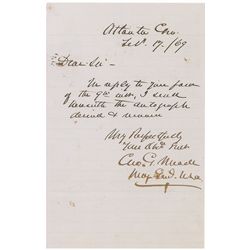 Atlanta Geo.
Feb. 17. /69
Dear Sir -
In reply to your favor
of the 9th inst, I send
herewith the autograph
desired & remain
Very Respectfully
Your Obd. Svt
Geo. G. Meade
Maj. Genl. U.S.A.